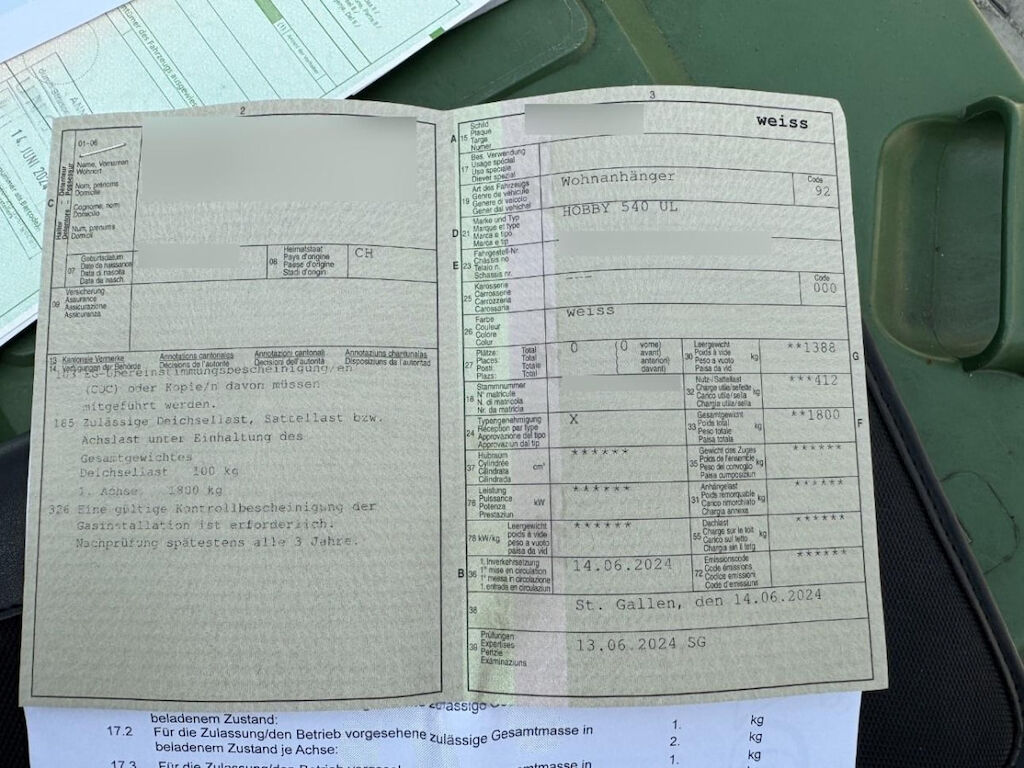 14. JUNI 2024
2
01-06
Name, Vornamen
Wohnort
Nom, prénoms
Domicile
Cognome, nom
Domicilio
Num, prenums
Domicil
C
07
Geburtsdatum
Date de naissance
Data di nascita
Data da nasch.
08
Heimatstaat
Pays d'origine
Paese d'origine
Stadi d'origin
CH
09
Versicherung
Assurance
Assicurazione
Assicuranza
13
14
Kantonale Vermerke
Verfügungen der Behörde
Annotations cantonales
Décisions de l'autorité
Annotazioni cantonali
Decisioni dell'autorità
Annotaziuns chantunalas
Disposiziuns da l'autoritad
183 EG-Übereinstimmungsbescheinigung/en
(COC) oder Kopie/n davon müssen
mitgeführt werden.
185 Zulässige Deichsellast, Sattellast bzw.
Achslast unter Einhaltung des
Gesamtgewichtes
Deichsellast 100 kg
1. Achse 1800 kg
326 Eine gültige Kontrollbescheinigung der
Gasinstallation ist erforderlich.
Nachprüfung spätestens alle 3 Jahre.
3
A 15
Schild
Plaque
Targa
Numer
weiss
17
Bes. Verwendung
Usage spécial
Uso speciale
Diever spezial
19
Art des Fahrzeugs
Genre de véhicule
Genere di veicolo
Gener dal vehichel
Wohnanhänger
Code
92
D 21
Marke und Typ
Marque et type
Marca e tipo
Marca e tip
HOBBY 540 UL
E 23
Fahrgestell-Nr.
Châssis no
Telaio n.
Schassis nr.
25
Karosserie
Carrosserie
Carrozzeria
Carossaria
---
Code
000
26
Farbe
Couleur
Colore
Colur
weiss
27
Plätze: Total
Places: Total
Posti: Totale
Plazs: Total
0 (0 vorne)
avant)
anteriori)
davant)
30
Leergewicht
Poids à vide
Peso a vuoto
Paisa da vid
kg
**1388
G
18
Stammnummer
N° matricule
N. di matricola
Nr. da matricla
32
Nutz-/Sattellast
Charge utile/sellette
Carico utile/sella
Chargia utila/sella
kg
***412
24
Typengenehmigung
Réception par type
Approvazione del tipo
Approvaziun dal tip
X
33
Gesamtgewicht
Poids total
Peso totale
Paisa totala
kg
**1800
F
37
Hubraum
Cylindrée
Cilindrata
Cilindrada
cm³
******
35
Gewicht des Zuges
Poids de l'ensemble
Peso del convoglio
Paisa cumposiziun
kg
******
76
Leistung
Puissance
Potenza
Prestaziun
kW
******
31
Anhängelast
Poids remorquable
Carico rimorchiato
Chargia annexa
kg
******
78 kW/kg
Leergewicht
poids à vide
peso a vuoto
paisa da vid
******
55
Dachlast
Charge sur le toit
Carico sul tetto
Chargia sin il tetg
kg
******
B 36
1. Inverkehrsetzung
1re mise en circulation
1a messa in circolazione
1. entrada en circulaziun
14.06.2024
72
Emissionscode
Code émissions
Codice emissioni
Code d'emissiuns
******
38
St. Gallen, den 14.06.2024
39
Prüfungen
Expertises
Perizie
Examinaziuns
13.06.2024 SG
beladenem Zustand:
17.2 Für die Zulassung/den Betrieb vorgesehene zulässige Gesamtmasse in
beladenem Zustand je Achse:
1. kg
2. kg
1. kg
17.3